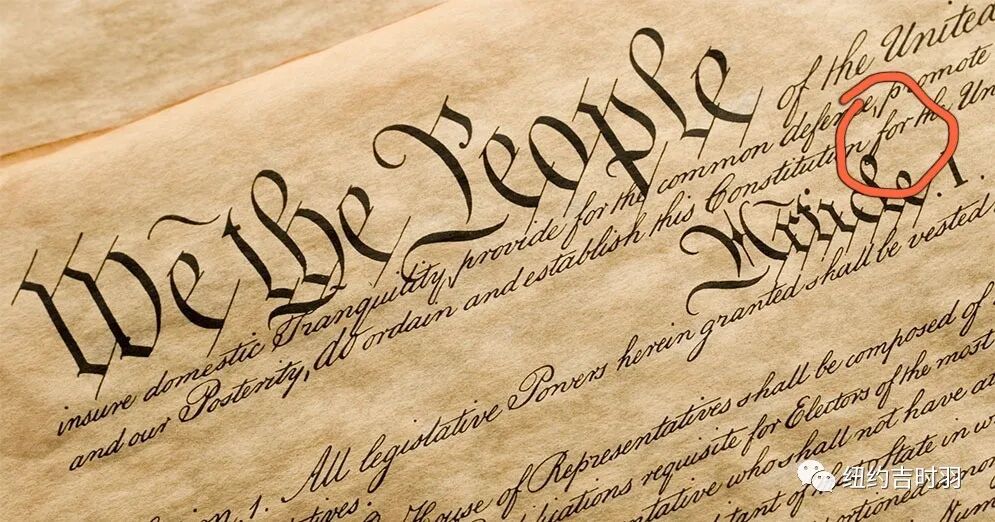 We the People of the United
insure domestic Tranquility, provide for the common defence, promote
and our Posterity, do ordain and establish this Constitution for the Un
Article. I.
1. All legislative Powers herein granted shall be vested
House of Representatives shall be composed of
ications requisite for Electors of the most
tives.
ntative who shall not have at
tant of that State in w
ortioned amon
Num
纽约吉时羽